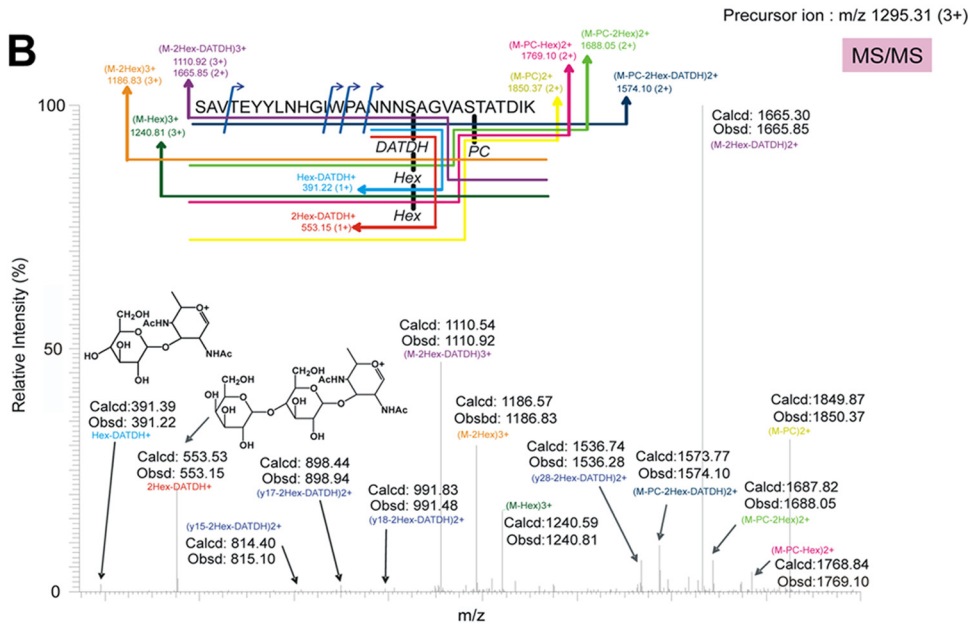 Precursor ion : m/z 1295.31 (3+)
B
MS/MS
(M-2Hex-DATDH)3+
1110.92 (3+)
1665.85 (2+)
(M-2Hex)3+
1186.83 (3+)
(M-Hex)3+
1240.81 (3+)
(M-PC-2Hex)2+
1688.05 (2+)
(M-PC-Hex)2+
1769.10 (2+)
(M-PC)2+
1850.37 (2+)
(M-PC-2Hex-DATDH)2+
1574.10 (2+)
SAVTEYYLNHGIWPANNNSAGVASTATDIK
DATDH
PC
Hex
Hex
Hex-DATDH+
391.22 (1+)
2Hex-DATDH+
553.15 (1+)
Relative Intensity (%)
100
50
0
m/z
Calcd: 1665.30
Obsd: 1665.85
(M-2Hex-DATDH)2+
CH2OH
AcHN
O+
O
HO
OH
O
NHAc
OH
CH2OH
CH2OH
AcHN
O+
OH
O
O
OH
O
OH
O
NHAc
OH
OH
Calcd:391.39
Obsd: 391.22
Hex-DATDH+
Calcd: 553.53
Obsd: 553.15
2Hex-DATDH+
(y15-2Hex-DATDH)2+
Calcd: 814.40
Obsd: 815.10
Calcd: 898.44
Obsd: 898.94
(y17-2Hex-DATDH)2+
Calcd: 991.83
Obsd: 991.48
(y18-2Hex-DATDH)2+
Calcd: 1110.54
Obsd: 1110.92
(M-2Hex-DATDH)3+
Calcd: 1186.57
Obsbd: 1186.83
(M-2Hex)3+
(M-Hex)3+
Calcd: 1240.59
Obsd:1240.81
Calcd: 1536.74
Obsd: 1536.28
(y28-2Hex-DATDH)2+
Calcd:1573.77
Obsd: 1574.10
(M-PC-2Hex-DATDH)2+
Calcd: 1687.82
Obsd: 1688.05
(M-PC-2Hex)2+
(M-PC-Hex)2+
Calcd:1768.84
Obsd: 1769.10
Calcd:1849.87
Obsd: 1850.37
(M-PC)2+